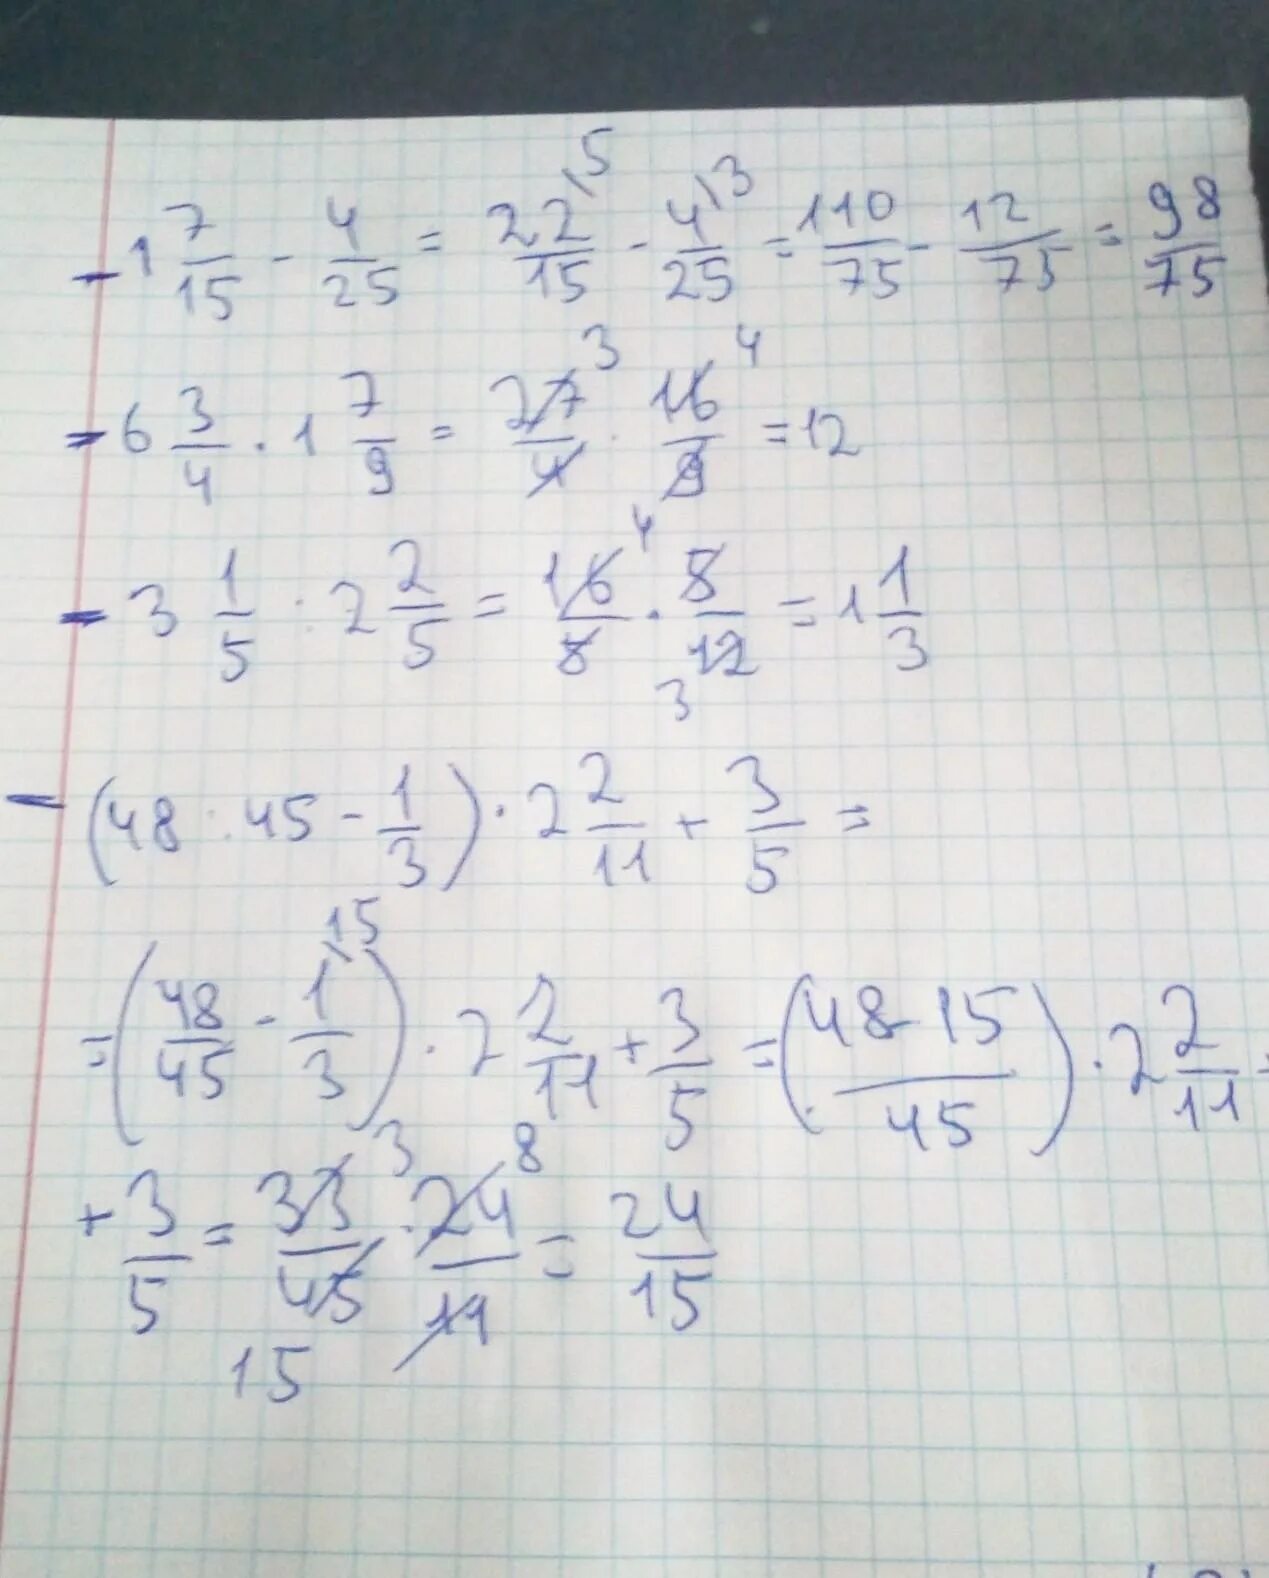 - 1 7/15 - 4/25 = 22\5/15 - 4\3/25 = 110/75 - 12/75 = 98/75
- 6 3/4 · 1 7/9 = 27 3/4 · 16 4/9 = 12
- 3 1/5 : 2 2/5 = 16 4/5 · 5/12 3 = 1 1/3
- (48 : 45 - 1/3) · 2 2/11 + 3/5 =
= (48/45 - 1\15/3) · 2 2/11 + 3/5 = (48-15/45) · 2 2/11 +
+ 3/5 = 33 3/45 15 · 24 8/11 = 24/15